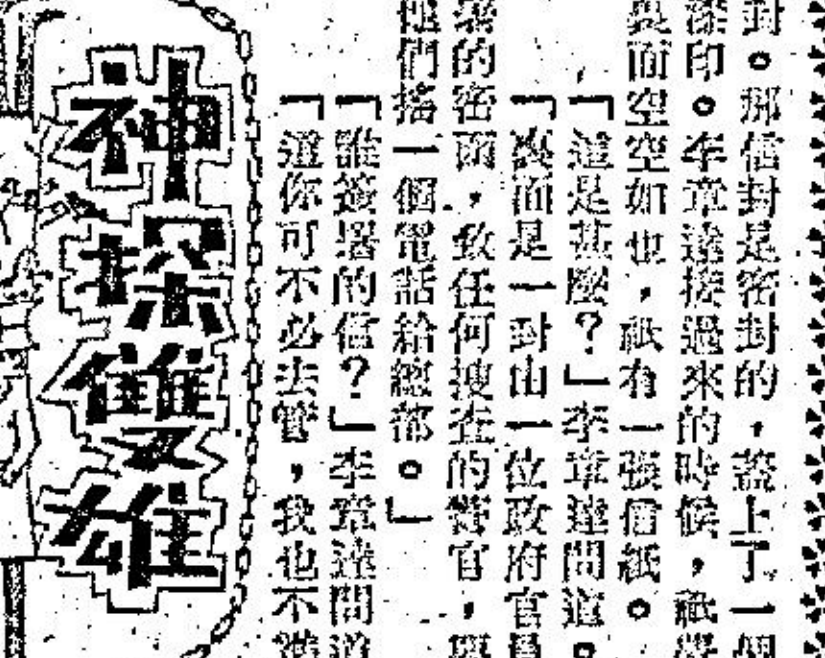 封。那信封是密封的，蓋上了一個
漆印。李章達接過來的時候，祇覺
裏面空空如也，祇有一張信紙。
「這是甚麼？」李章達問道。
「裏面是一封由一位政府官員
的密函，致任何搜查的警官，
他們搖一個電話給總部。」
「誰簽署的信？」李章達問道
「這你可不必去管，我也不
神探雙雄